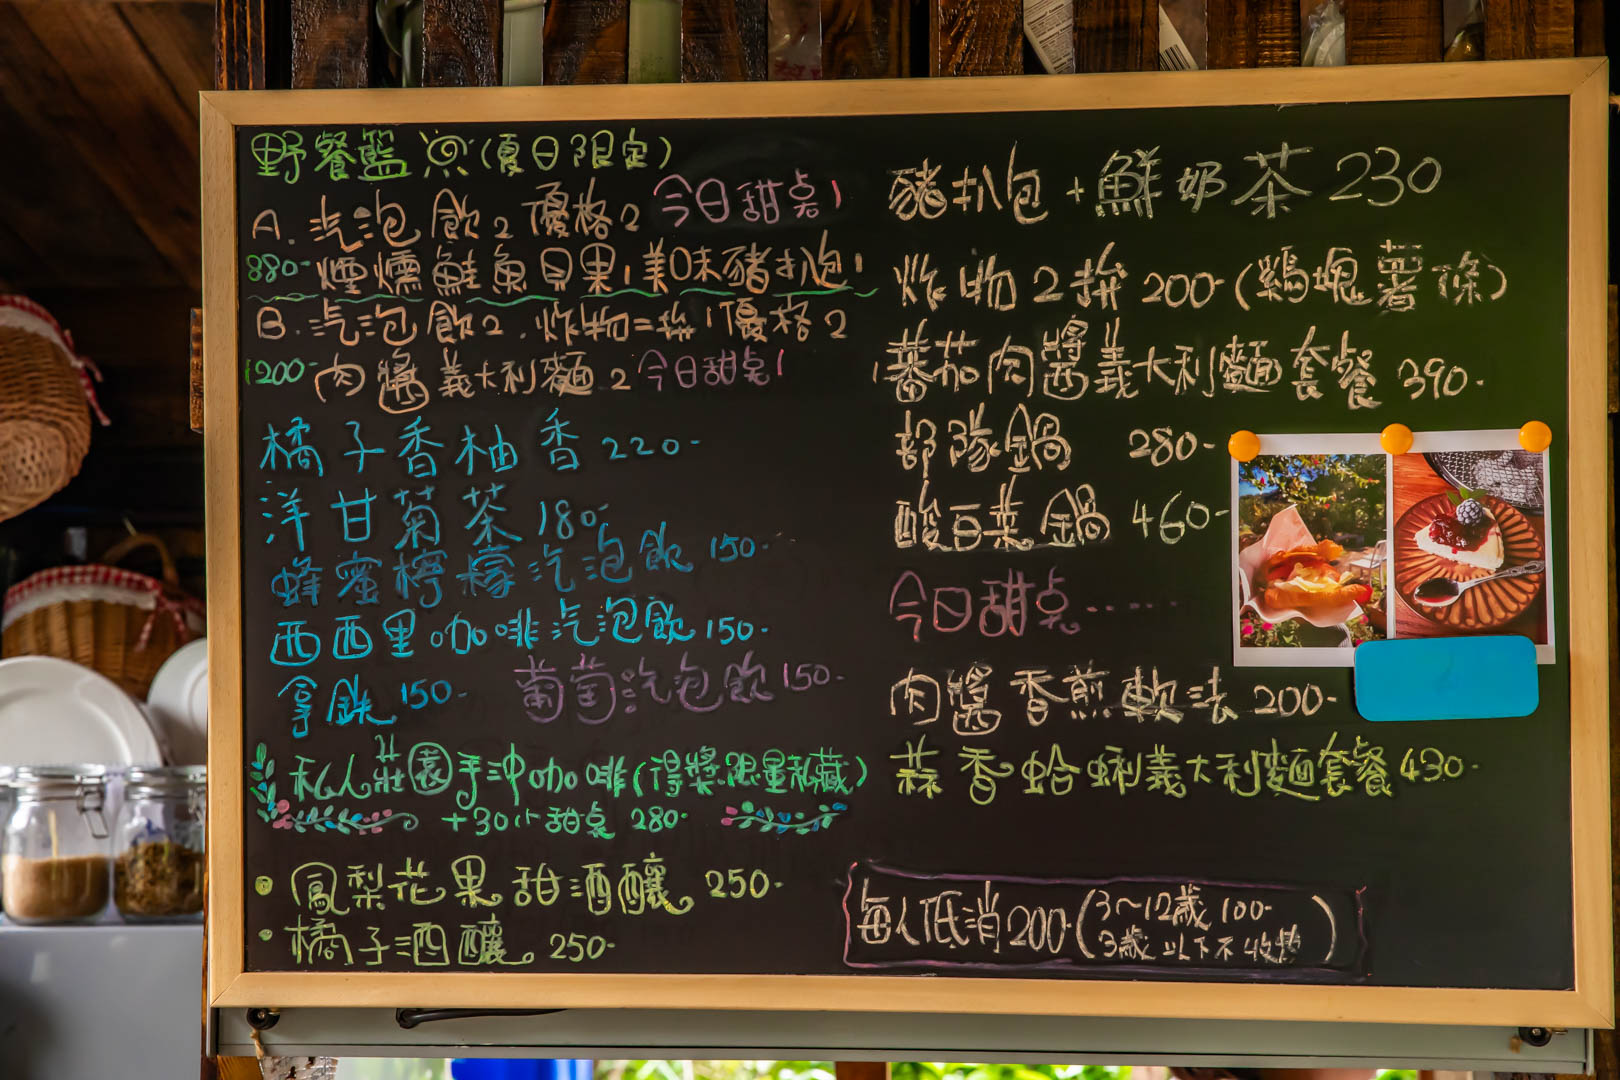 野餐籃(夏日限定)
A.汽泡飲2優格2 今日甜点1
880-煙燻鮭魚貝果1美味豬扒包1
B.汽泡飲2.炸物=拚1優格2
1200-肉醬義大利麵2今日甜点1
橘子香柚香220-
洋甘菊茶180-
蜂蜜檸檬汽泡飲150-
西西里咖啡汽泡飲150-
拿鉄150- 葡萄汽泡飲150-
私人莊園手沖咖啡(得獎限量私藏)
+30小甜点280-
鳳梨花果甜酒釀。250-
橘子酒釀。250-
豬扒包+鮮奶茶230
炸物2拚200-(鷄塊薯條)
蕃茄肉醬義大利麵套餐390-
部隊鍋 280-
酸白菜鍋460-
今日甜点......
肉醬香煎軟法200-
蒜香蛤蜊義大利麵套餐430-
每人低消200(3～12歲100-
3歲以下不收費)